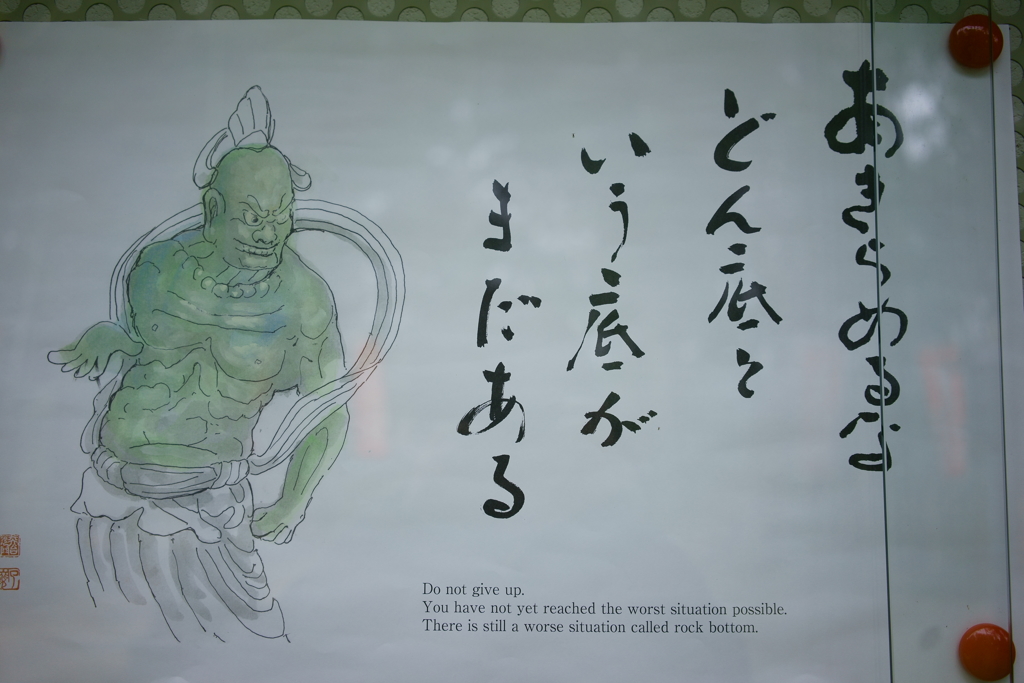 あきらめるな
どん底と
いう底が
まだある
Do not give up.
You have not yet reached the worst situation possible.
There is still a worse situation called rock bottom.